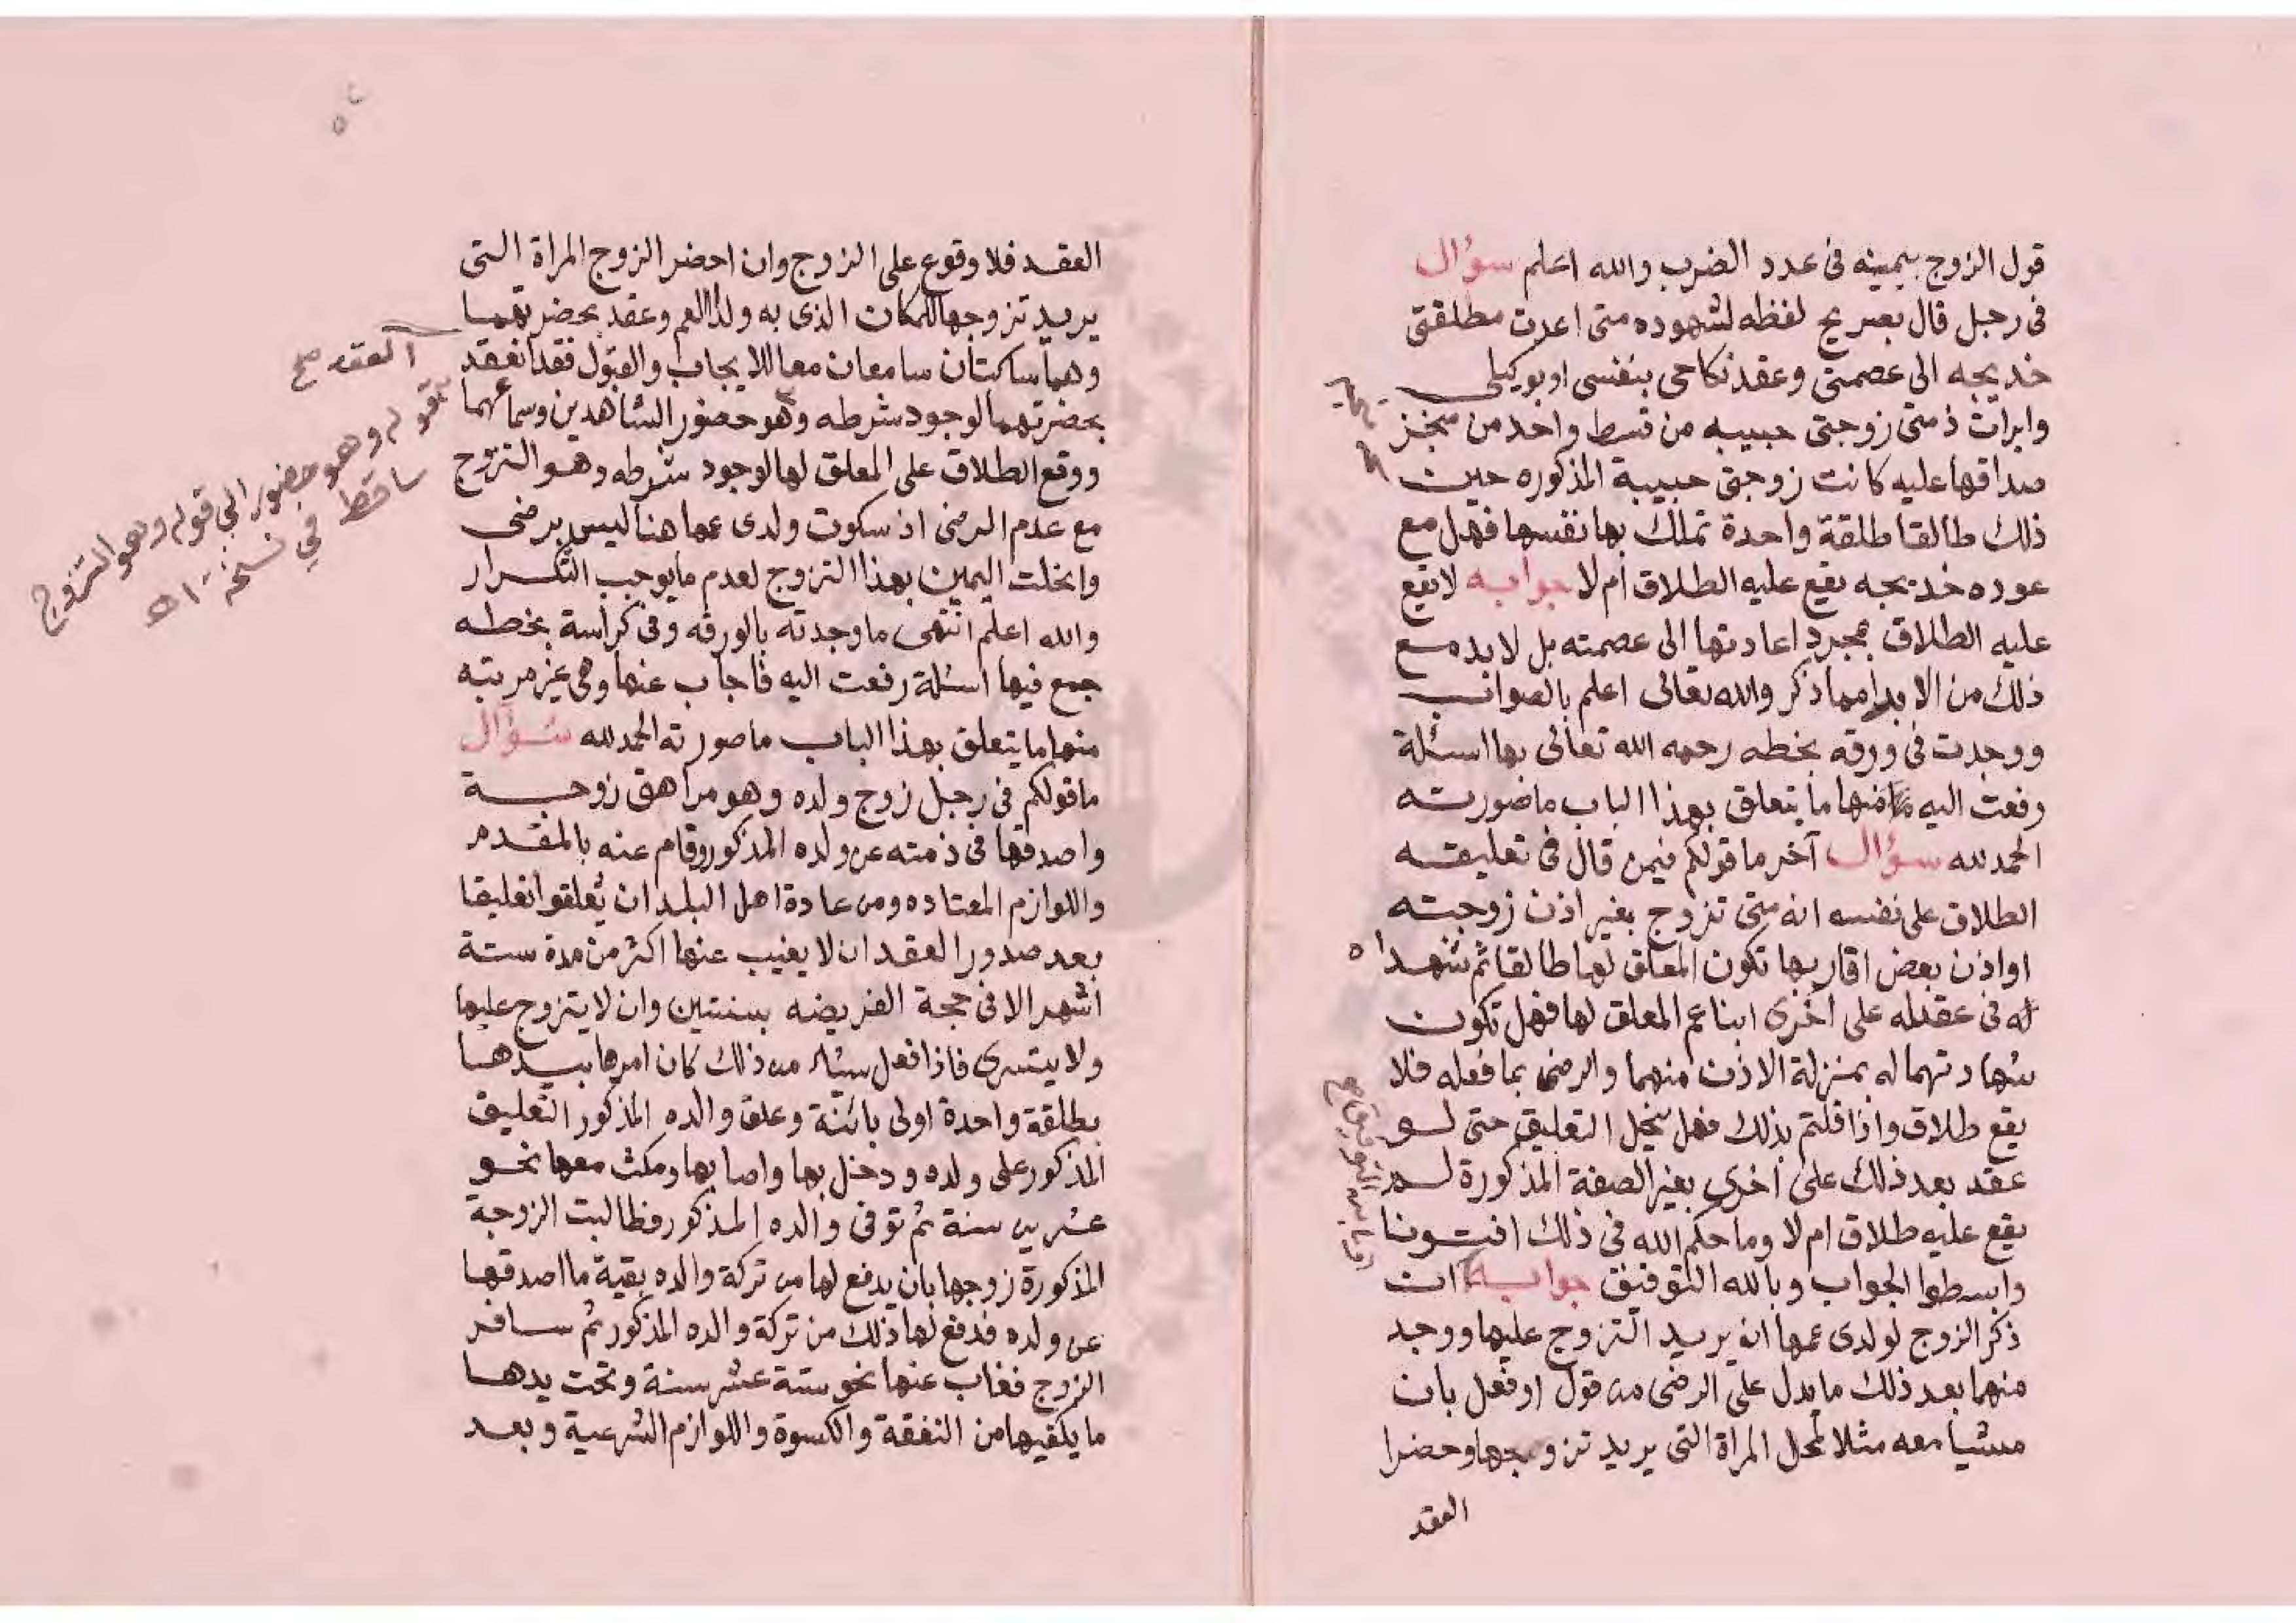 قول الزوج بيمينه فى عدد الضرب والله اعلم سؤال
فى رجل قال بصريح لفظه لشهوده متى اعدت مطلقتى
خديجه الى عصمتى وعقد نكاحى بنفسى او بوكيلى
وابرات ذمتى زوجتى حبيبه من قسط واحد من منجز
صداقها عليه كانت زوجتى حبيبة المذكوره حين
ذلك طالقا طلقة واحدة تملك بها نفسها فهل مع
عوده خديجه يقع عليه الطلاق أم لا جوابه لا يقع
عليه الطلاق بمجرد اعادتها الى عصمته بل لا بد مع
ذلك من الابرا مما ذكر والله تعالى اعلم بالصواب
ووجدت فى ورقه بخطه رحمه الله تعالى بها اسئلة
رفعت اليه منها ما يتعلق بهذا الباب ما صورته
الحمد لله سؤال آخر ما قولكم فيمن قال فى تعليقه
الطلاق على نفسه انه متى تزوج بغير اذن زوجته
او اذن بعض اقاربها تكون المعلق لها طالقا ثم شهدا
له فى عقد له على أخرى ابنا عم المعلق لها فهل تكون
شهادتهما له بمنزلة الاذن منهما والرضى بما فعله فلا
يقع طلاق واذا قلتم بذلك فهل ينحل التعليق حتى لو
عقد بعد ذلك على أخرى بغير الصفة المذكورة لم
يقع عليه طلاق ام لا وما حكم الله فى ذلك افتونا
وابسطوا الجواب وبالله التوفيق جوابه ان
ذكر الزوج لولدى عمها انه يريد التزوج عليها ووجد
منهما بعد ذلك ما يدل على الرضى من قول او فعل بان
مشيا معه مثلا لمحل المراة التى يريد تزوجها وحضرا
العقد
العقد فلا وقوع على الزوج وان احضر الزوج المراة التى
يريد تزوجها للمكان الذى به ولدا العم وعقد بحضرتهما
وهما ساكتان سامعان معا للايجاب والقبول فقد انعقد
العقد صح
بحضرتهما لوجود شرطه وهو حضور الشاهدين وسماعهما
ووقع الطلاق على المعلق لها لوجود شرطه وهو التزوج
قوله وهو حضور الي قوله وهو التزوج
ساقط في نسخة اه
مع عدم الرضى اذ سكوت ولدى عمها هنا ليس برضى
وانحلت اليمين بهذا التزوج لعدم ما يوجب التكرار
والله اعلم انتهى ما وجدته بالورقه وفى كراسة بخطه
جمع فيها اسئلة رفعت اليه فاجاب عنها وهى غير مرتبه
منها ما يتعلق بهذا الباب ما صورته الحمد لله سؤال
ما قولكم فى رجل زوج ولده وهو مراهق زوجة
واصدقها فى ذمته عن ولده المذكور وقام عنه بالمقدم
واللوازم المعتاده ومن عادة اهل البلد ان يُعلقوا تعليقا
بعد صدور العقد ان لا يغيب عنها اكثر من مدة ستة
اشهر الا فى حجة الفريضه بسنتين وان لا يتزوج عليها
ولا يتسرى فاذا فعل شيئا من ذلك كان امرها بيدها
بطلقة واحدة اولى بائنة وعلق والده المذكور التعليق
المذكور على ولده ودخل بها واصابها ومكث معها نحو
عشرين سنة ثم توفى والده المذكور فطالبت الزوجة
المذكورة زوجها بان يدفع لها من تركة والده بقية ما اصدقها
عن ولده فدفع لها ذلك من تركة والده المذكور ثم سافر
الزوج فغاب عنها نحو ستة عشر سنة وتحت يدها
ما يكفيها من النفقة والكسوة واللوازم الشرعية وبعد